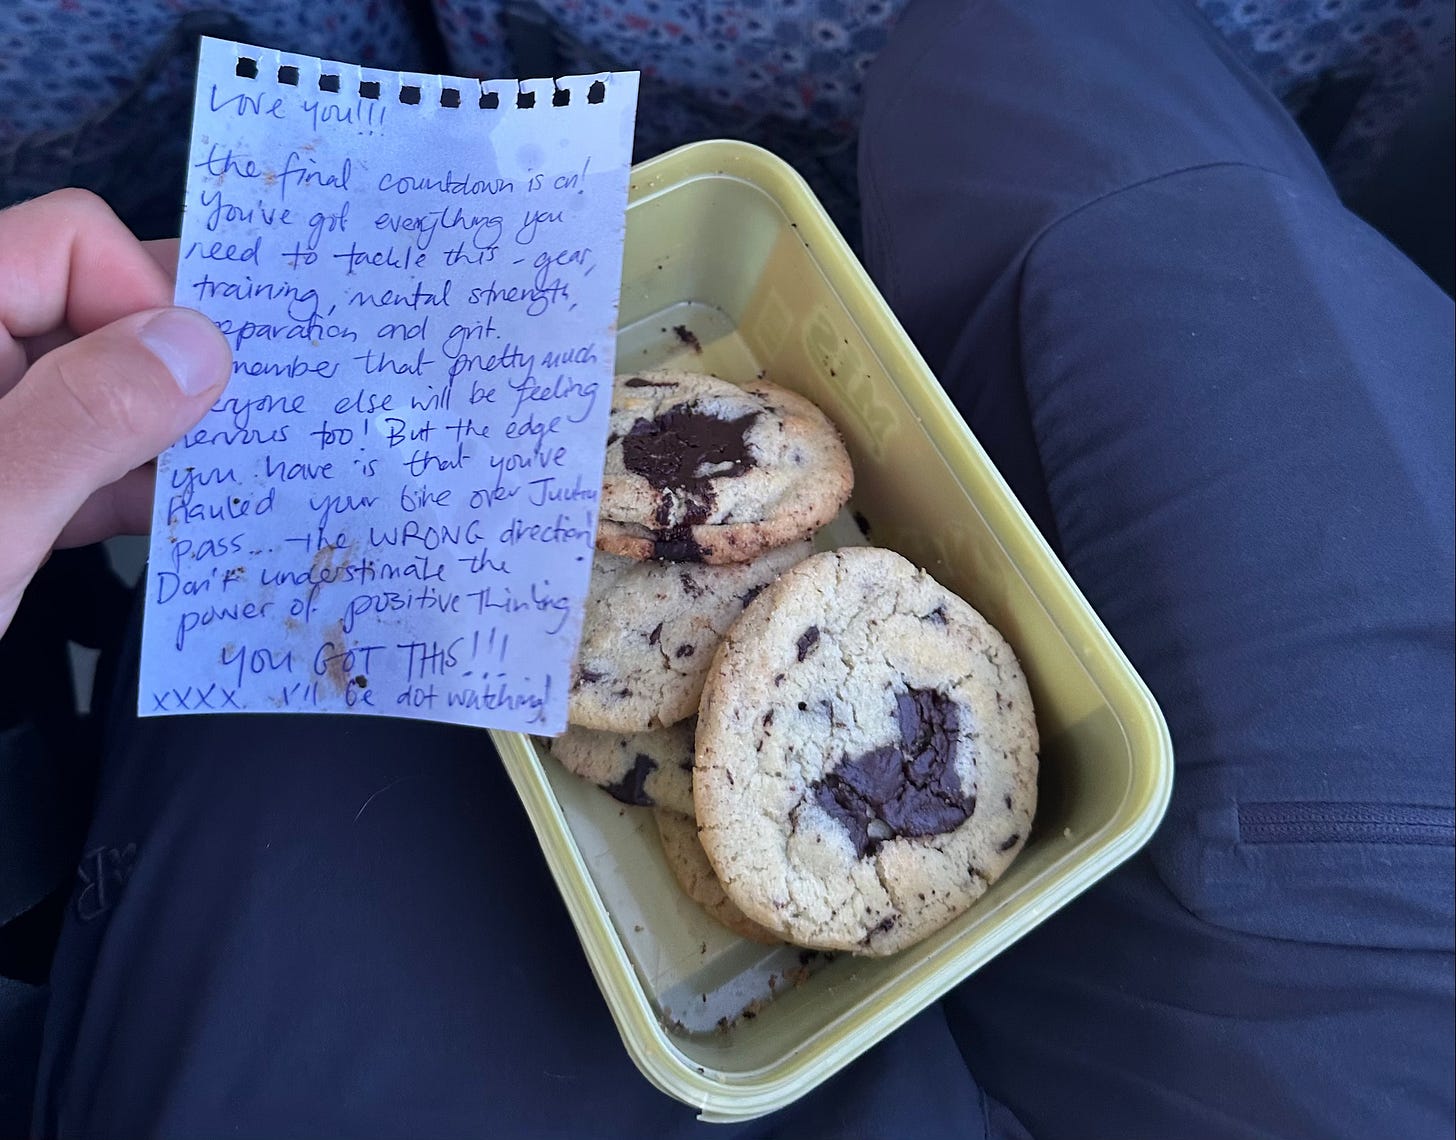 Love you!!!
the final countdown is on!
You've got everything you
need to tackle this - gear,
training, mental strength,
eparation and grit.
member that pretty much
eryone else will be feeling
nervous too! But the edge
you have is that you've
Hauled your bike over
pass... the WRONG direction!
Don't underestimate the
power of positive thinking
YOU GOT THIS!!!
xxxx. I'll be dot watching!